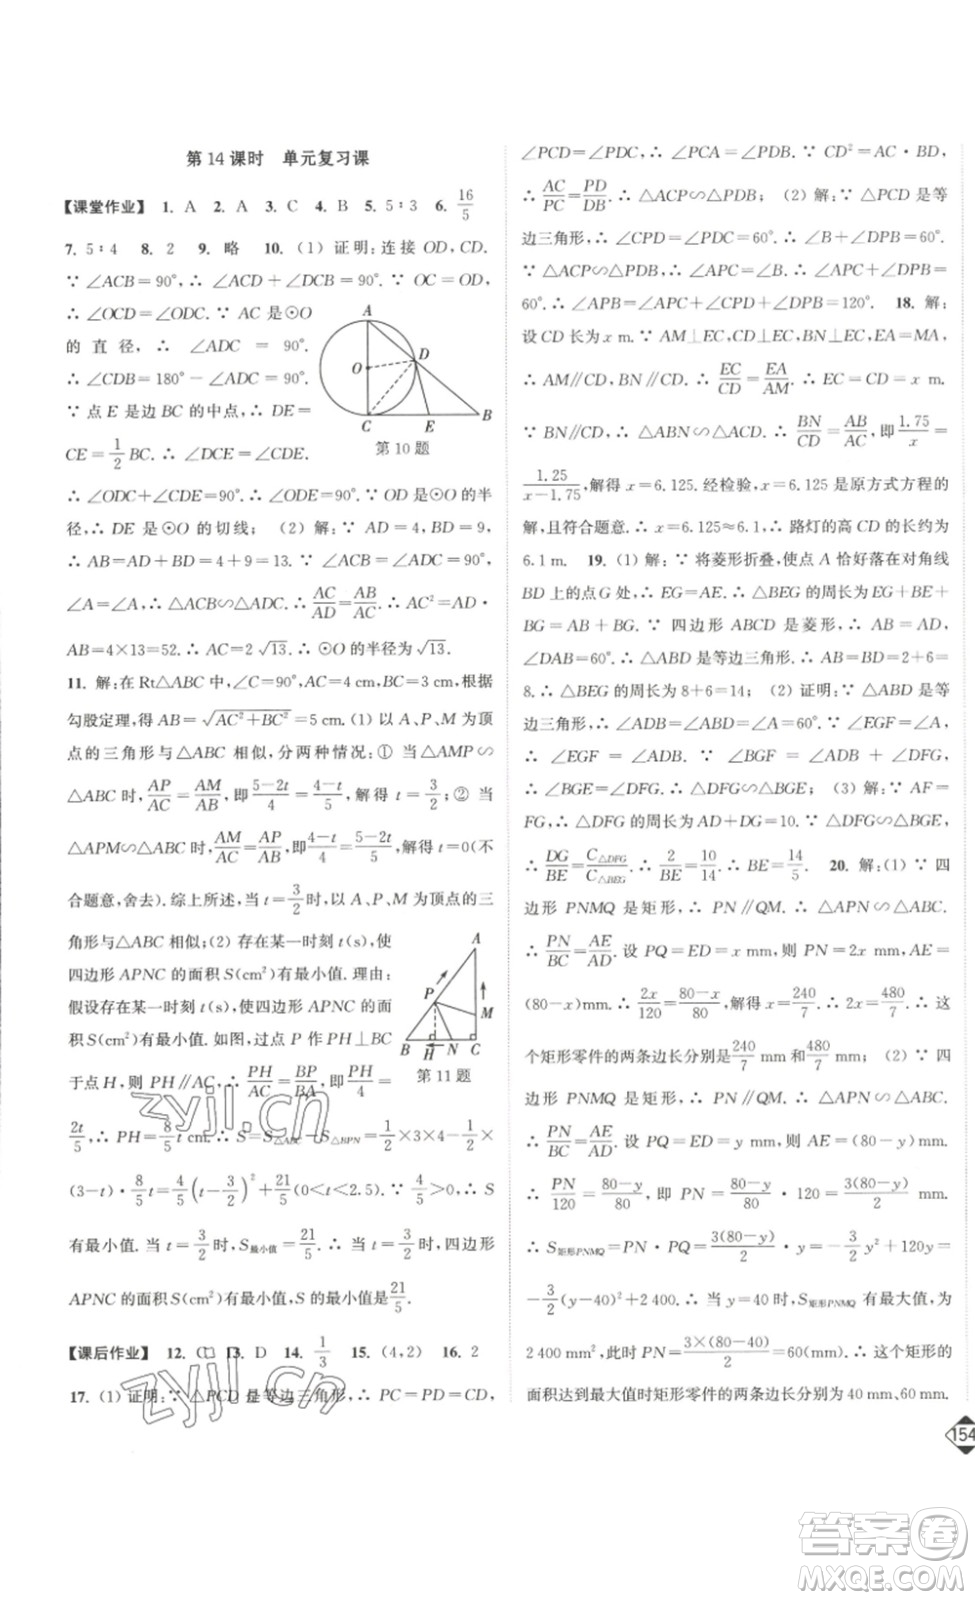 第14课时 单元复习课
【课堂作业】 1. A 2. A 3. C 4. B 5. 5∶3 6. 16/5
7. 5∶4 8. 2 9. 略 10. (1) 证明:连接 OD,CD.
∵ ∠ACB=90°,∴ ∠ACD+∠DCB=90°. ∵ OC=OD,
∴ ∠OCD=∠ODC. ∵ AC 是⊙O
的直径,∴ ∠ADC=90°.
∴ ∠CDB=180°-∠ADC=90°.
∵ 点 E 是边 BC 的中点,∴ DE=
CE=1/2 BC. ∴ ∠DCE=∠CDE.
A
D
O
C
E
B
第10题
∴ ∠ODC+∠CDE=90°. ∴ ∠ODE=90°. ∵ OD 是⊙O 的半
径,∴ DE 是⊙O 的切线; (2) 解:∵ AD=4,BD=9,
∴ AB=AD+BD=4+9=13. ∵ ∠ACB=∠ADC=90°,
∠A=∠A,∴ △ACB∽△ADC. ∴ AC/AD=AB/AC. ∴ AC²=AD·
AB=4×13=52. ∴ AC=2√13. ∴ ⊙O 的半径为√13.
11. 解:在 Rt△ABC 中,∠C=90°,AC=4 cm,BC=3 cm,根据
勾股定理,得 AB=√(AC²+BC²)=5 cm. (1) 以 A、P、M 为顶
点的三角形与△ABC 相似,分两种情况:① 当△AMP∽
△ABC 时,AP/AC=AM/AB,即(5-2t)/4=(4-t)/5,解得 t=3/2;② 当
△APM∽△ABC 时,AM/AC=AP/AB,即(4-t)/4=(5-2t)/5,解得 t=0(不
合题意,舍去). 综上所述,当 t=3/2时,以 A、P、M 为顶点的三
角形与△ABC 相似;(2) 存在某一时刻 t(s),使
四边形 APNC 的面积 S(cm²)有最小值. 理由:
假设存在某一时刻 t(s),使四边形 APNC 的面
积 S(cm²)有最小值. 如图,过点 P 作 PH⊥BC
于点 H,则 PH∥AC,∴ PH/AC=BP/BA,即PH/4=
A
P
M
B
H
N
C
第11题
2t/5,∴ PH=8/5 t cm. ∴ S=S△ABC-S△BPN=1/2×3×4-1/2×
(3-t)·8/5 t=4/5(t-3/2)²+21/5(0<t<2.5). ∵ 4/5>0,∴ S
有最小值. 当 t=3/2时,S最小值=21/5. ∴ 当 t=3/2时,四边形
APNC 的面积 S(cm²)有最小值,最小值是21/5.
【课后作业】 12. C 13. D 14. 1/3 15. (4,2) 16. 2
17. (1) 证明:∵ △PCD 是等边三角形,∴ PC=PD=CD,
∠PCD=∠PDC,∴ ∠PCA=∠PDB. ∵ CD²=AC·BD,
∴ AC/PC=PD/DB. ∴ △ACP∽△PDB; (2) 解:∵ △PCD 是等
边三角形,∴ ∠CPD=∠PDC=60°. ∴ ∠B+∠DPB=60°.
∵ △ACP∽△PDB,∴ ∠APC=∠B. ∴ ∠APC+∠DPB=
60°. ∴ ∠APB=∠APC+∠CPD+∠DPB=120°. 18. 解:
设 CD 长为 x m. ∵ AM⊥EC,CD⊥EC,BN⊥EC,EA=MA,
∴ AM∥CD∥BN. ∴ EC/CD=EA/AM. ∴ EC=CD=x m.
∵ BN∥CD,∴ △ABN∽△ACD. ∴ BN/CD=AB/AC,即1.75/x=
1.25/(x-1.75),解得 x=6.125. 经检验,x=6.125 是原方式方程的
解,且符合题意. ∴ x=6.125≈6.1,∴ 路灯的高 CD 的长约为
6.1 m. 19. (1) 解:∵ 将菱形折叠,使点 A 恰好落在对角线
BD 上的点 G 处,∴ EG=AE. ∴ △BEG 的周长为 EG+BE+
BG=AB+BG. ∵ 四边形 ABCD 是菱形,∴ AB=AD,
∠DAB=60°. ∴ △ABD 是等边三角形. ∴ AB=BD=2+6=
8. ∴ △BEG 的周长为 8+6=14; (2) 证明:∵ △ABD 是等
边三角形,∴ ∠ADB=∠ABD=∠A=60°. ∵ ∠EGF=∠A,
∴ ∠EGF=∠ADB. ∵ ∠BGF=∠ADB+∠DFG,
∴ ∠BGE=∠DFG. ∴ △DFG∽△BGE; (3) 解:∵ AF=
FG,∴ △DFG 的周长为 AD+DG=10. ∵ △DFG∽△BGE,
∴ DG/BE=C△DFG/C△BEG. ∴ 2/BE=10/14. ∴ BE=14/5. 20. 解:(1) ∵ 四
边形 PNMQ 是矩形,∴ PN∥QM. ∴ △APN∽△ABC.
∴ PN/BC=AE/AD. 设 PQ=ED=x mm,则 PN=2x mm,AE=
(80-x)mm. ∴ 2x/120=(80-x)/80,解得 x=240/7. ∴ 2x=480/7. ∴ 这
个矩形零件的两条边长分别是240/7 mm 和480/7 mm; (2) ∵ 四
边形 PNMQ 是矩形,∴ PN∥QM. ∴ △APN∽△ABC.
∴ PN/BC=AE/AD. 设 PQ=ED=y mm,则 AE=(80-y)mm.
∴ PN/120=(80-y)/80,即 PN=(80-y)/80·120=3(80-y)/2 mm.
∴ S矩形PNMQ=PN·PQ=3(80-y)/2·y=-3/2 y²+120y=
-3/2(y-40)²+2 400. ∴ 当 y=40 时,S矩形PNMQ有最大值,为
2 400 mm²,此时 PN=3×(80-40)/2=60(mm). ∴ 这个矩形零件的
面积达到最大值时矩形零件的两条边长分别为 40 mm,60 mm.
154
zyjl.cn
zyjl.cn
答案卷
MXQE.COM